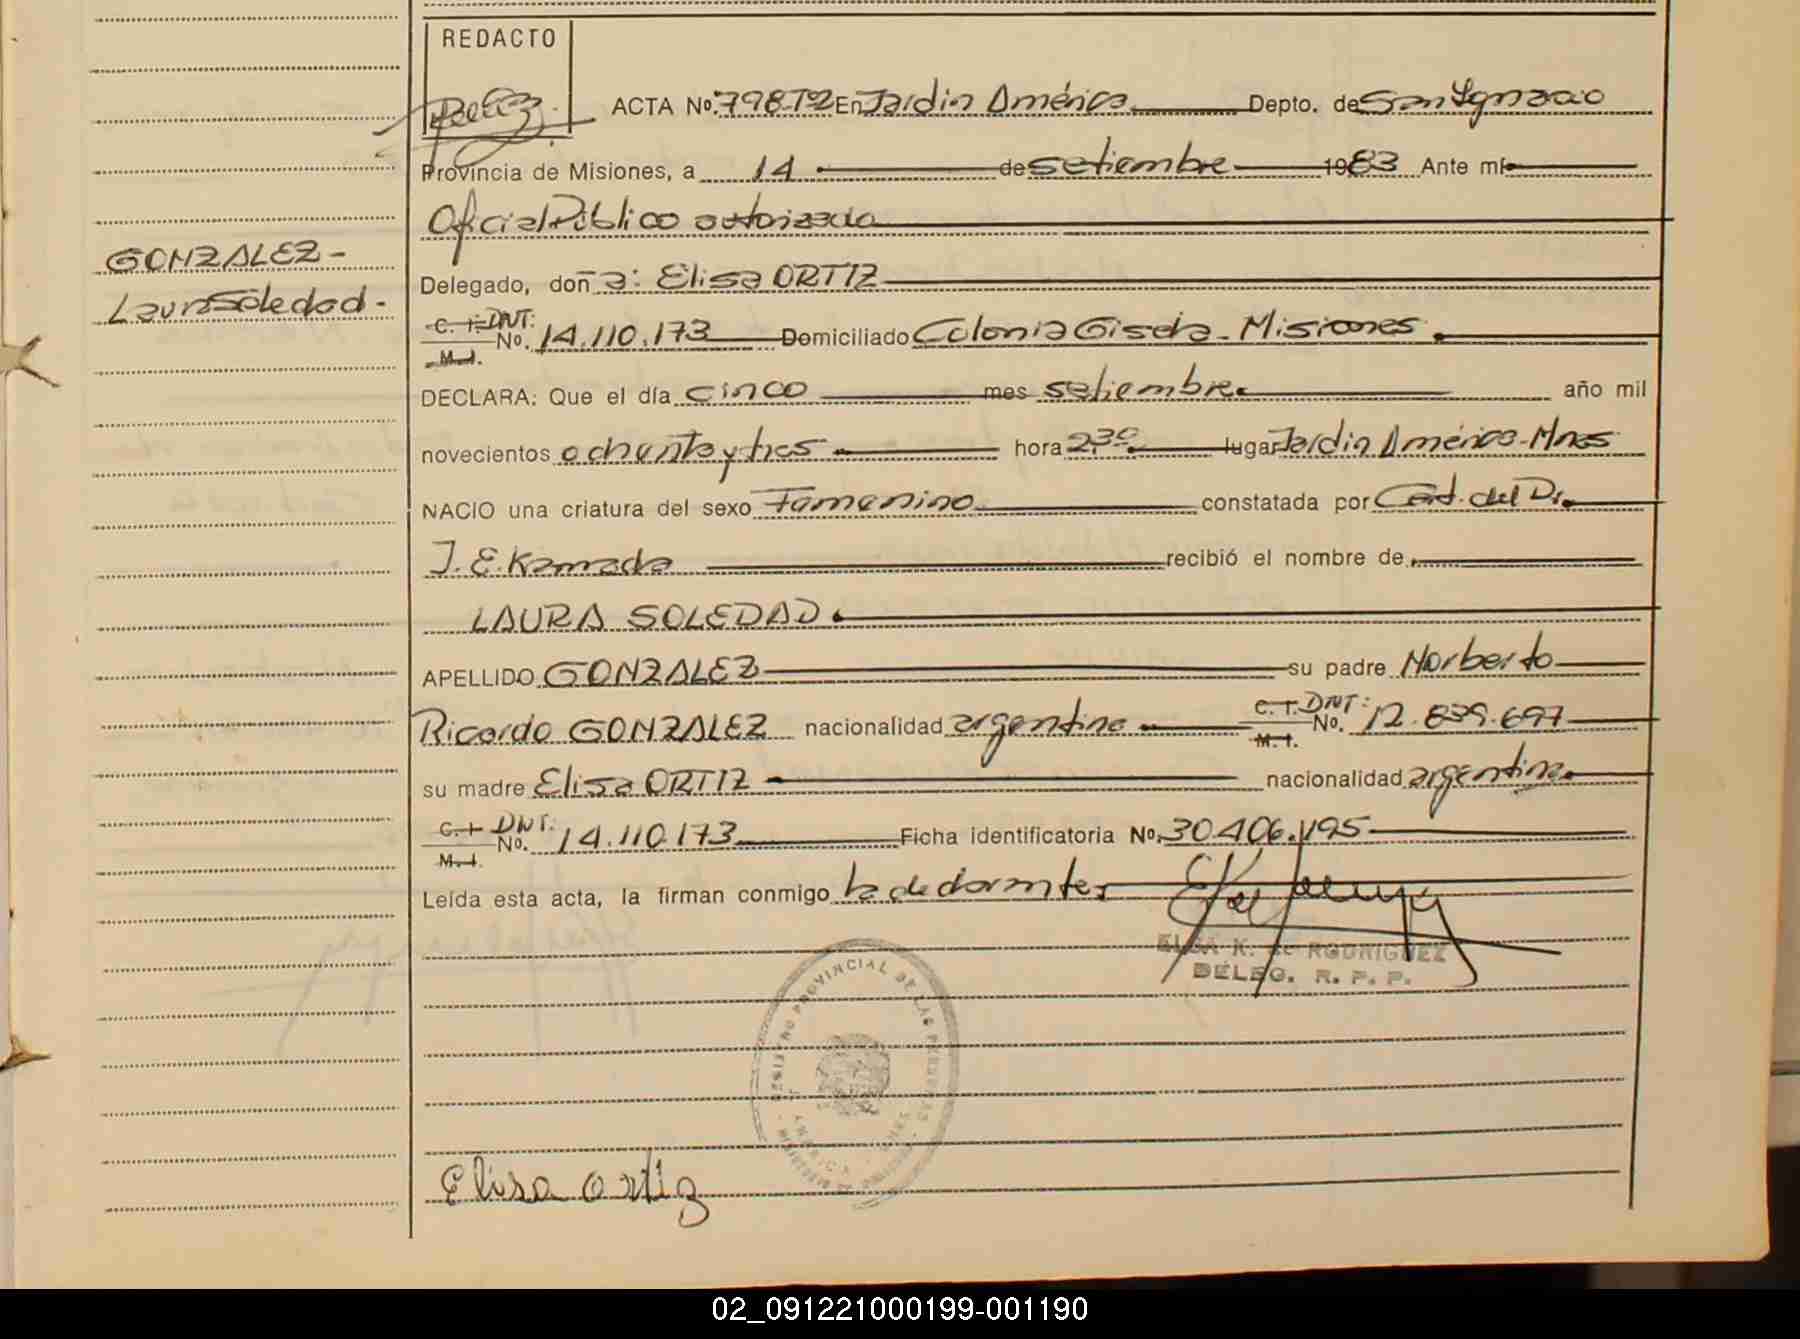 REDACTO
ACTA No. 798-Tº2 En Jardin América Depto. de San Ignacio
Provincia de Misiones, a 14 de setiembre 1983 Ante mí
Oficial Público autorizada
GONZALEZ -
Laura Soledad -
Delegado, don a: Elisa ORTIZ
C. I. DNI: No. M. I. 14.110.173 Domiciliado Colonia Gisela - Misiones.
DECLARA: Que el día cinco mes setiembre año mil
novecientos ochenta y tres hora 2,30 lugar Jardin América - Mnes
NACIO una criatura del sexo Femenino constatada por Cert. del Dr.
J. E. Kamada recibió el nombre de
LAURA SOLEDAD.
APELLIDO GONZALEZ su padre Norberto
Ricardo GONZALEZ nacionalidad argentino C. I. DNI: No. M. I. 12.839.697
su madre Elisa ORTIZ nacionalidad argentina
C. I. DNI: No. M. I. 14.110.173 Ficha identificatoria No. 30.406.195
Leída esta acta, la firman conmigo la declarante
ELSA K. de RODRIGUEZ
DELEG. R. P. P.
REGISTRO PROVINCIAL DE LAS PERSONAS
Elisa Ortiz
02_091221000199-001190